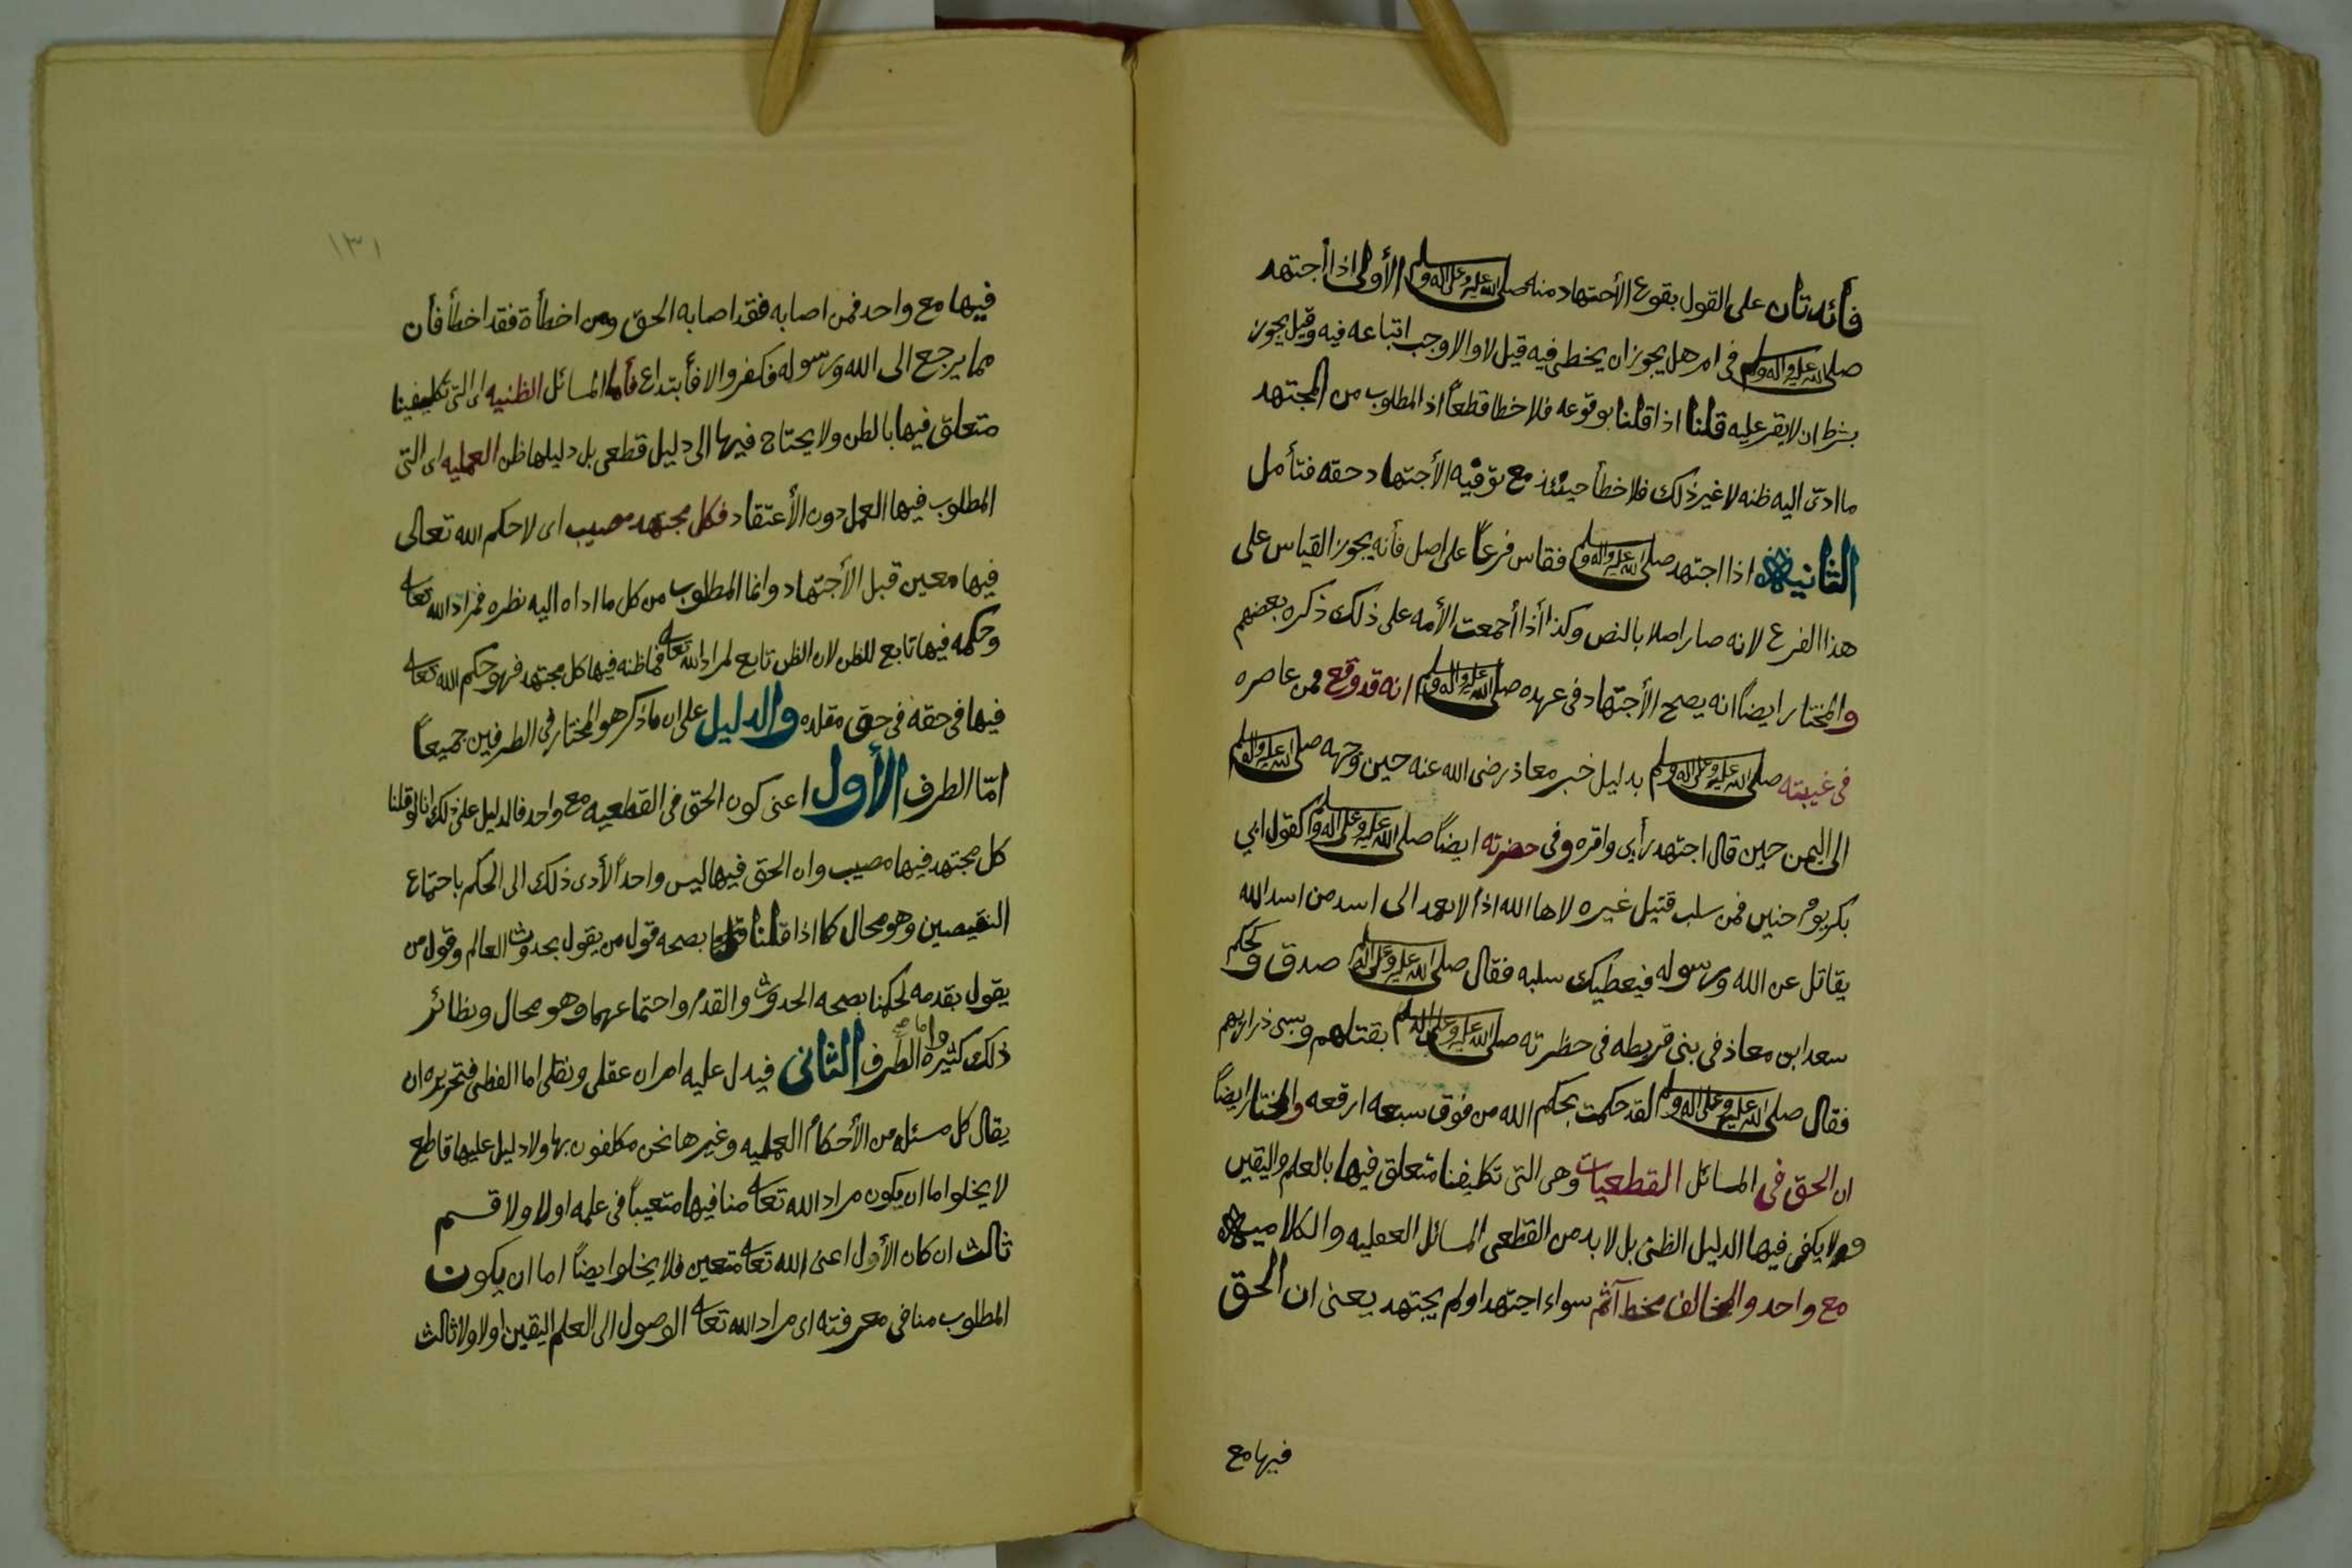 فائدتان على القول بقوع الأجتهاد منه صلى الله عليه وعلى اله وسلم الأولى اذا أجتهد
صلى الله عليه واله وسلم في امر هل يجوز ان يخطي فيه قيل لا والا وجب اتباعه فيه وقيل يجوز
بشرط ان لا يقر عليه قلنا اذا قلنا بوقوعه فلا خطا قطعاً اذ المطلوب من المجتهد
ما ادى اليه ظنه لا غير ذلك فلا خطأ حينئذ مع توفيه الأجتهاد حقه فتأمل
الثانيه اذا اجتهد صلى الله عليه واله وسلم فقاس فرعاً على اصل فأنه يجوز القياس على
هذا الفرع لانه صار اصلا بالنص وكذا أذا أجمعت الأمه على ذلك ذكره بعضهم
والمختار ايضاً انه يصح الأجتهاد في عهده صلى الله عليه واله وسلم انه قد وقع ممن عاصره
في غيبته صلى الله عليه وعلى اله وسلم بدليل خبر معاذ رضى الله عنه حين وجهه صلى الله عليه واله وسلم
الى اليمن حين قال اجتهد رأيى واقره وفى حضرته ايضاً صلى الله عليه وعلى اله وسلم كقول ابي
بكر يوم حنين فمن سلب قتيل غيره لاها الله اذاً لا يعمد الى اسد من اسد الله
يقاتل عن الله ورسوله فيعطيك سلبه فقال صلى الله عليه وعلى اله صدق وكحكم
سعد ابن معاذ في بنى قريطه في حظرته صلى الله عليه وعلى اله وسلم بقتلهم وسبى ذراريهم
فقال صلى الله عليه وعلى اله وسلم لقد حكمت بحكم الله من فوق سبعه ارقعه والمختار ايضاً
ان الحق في المسائل القطعيات وهى التى تكليفنا متعلق فيها بالعلم واليقين
ولا يكفى فيها الدليل الظنى بل لا بد من القطعى المسائل العقليه والكلاميه
مع واحد والمخالف مخط آثم سواء اجتهد او لم يجتهد يعنى ان الحق
فيها مع
١٣١
فيها مع واحد فمن اصابه فقد اصابه الحق ومن اخطأة فقد اخطأ فأن
مما يرجع الى الله ورسوله فكفر والا فأبتداع فأما المسائل الظنيه اى التى تكليفينا
متعلق فيها بالطن ولا يحتاج فيها الى دليل قطعى بل دليلها ظن العمليه اى التى
المطلوب فيها العمل دون الأعتقاد فكل مجتهد مصيب اى لا حكم الله تعالى
فيها معين قبل الأجتهاد وانما المطلوب من كل ما اداه اليه نظره فمراد الله تعالى
وحكمه فيها تابع للظن لان الظن تابع لمراد الله تعالى فما ظنه فيها كل مجتهد فهو حكم الله تعالى
فيها في حقه في حق مقلده والدليل على ان ما ذكر هو المختار في الطرفين جميعاً
امّا الطرف الأول اعنى كون الحق فى القطعيه مع واحد فالدليل على ذلك انا لو قلنا
كل مجتهد فيها مصيب وان الحق فيها ليس واحداً لأدى ذلك الى الحكم باجتماع
النقيصين وهو محال كما اذا قلنا بصحه قول من يقول بحدوث العالم وقول من
يقول بقدمه لحكمنا بصحه الحدوث والقدم واجتماعهما وهو محال ونظائر
ذلك كثيره واما الطرف الثانى فيدل عليه امران عقلى ونقلى اما الفطى فتحريره ان
يقال كل مسئله من الأحكام العمليه وغيرها نحن مكلفون بها ولا دليل عليها قاطع
لا يخلوا اما ان يكون مراد الله تعالى منا فيها متعيباً في علمه اولا ولا قسم
ثالث ان كان الأول اعنى الله تعالى متعين فلا يخلوا ايضاً اما ان يكون
المطلوب منا فى معرفته اى مراد الله تعالى الوصول الى العلم اليقين اولا ولا ثالث